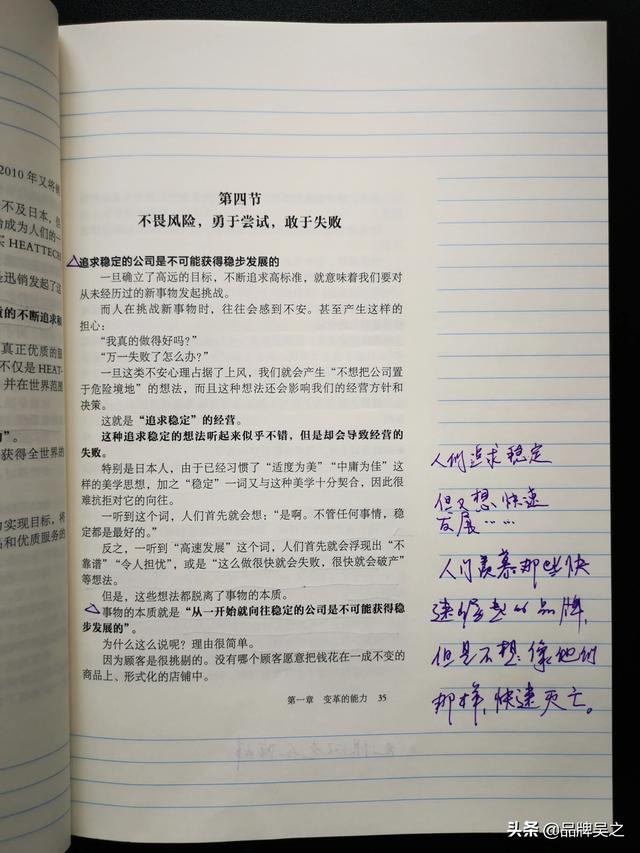 2010 年又将被
不及日本，但
成为人们的一
买 HEATTECH
迅销发起了这
的不断追求和
真正优质的服
不仅是 HEAT-
并在世界范围
”。
获得全世界的
实现目标，将
和优质服务的
第四节
不畏风险，勇于尝试，敢于失败
追求稳定的公司是不可能获得稳步发展的
一旦确立了高远的目标，不断追求高标准，就意味着我们要对
从未经历过的新事物发起挑战。
而人在挑战新事物时，往往会感到不安。甚至产生这样的
担心：
“我真的做得好吗？”
“万一失败了怎么办？”
一旦这类不安心理占据了上风，我们就会产生“不想把公司置
于危险境地”的想法，而且这种想法还会影响我们的经营方针和
决策。
这就是“追求稳定”的经营。
这种追求稳定的想法听起来似乎不错，但是却会导致经营的
失败。
特别是日本人，由于已经习惯了“适度为美”“中庸为佳”这
样的美学思想，加之“稳定”一词又与这种美学十分契合，因此很
难抗拒对它的向往。
一听到这个词，人们首先就会想：“是啊。不管任何事情，稳
定都是最好的。”
反之，一听到“高速发展”这个词，人们首先就会浮现出“不
靠谱”“令人担忧”，或是“这么做很快就会失败，很快就会破产”
等想法。
但是，这些想法都脱离了事物的本质。
事物的本质就是“从一开始就向往稳定的公司是不可能获得稳
步发展的”。
为什么这么说呢？理由很简单。
因为顾客是很挑剔的。没有哪个顾客愿意把钱花在一成不变的
商品上、形式化的店铺中。
第一章 变革的能力 35
人们追求稳定
但又想快速
发展……
人们羡慕那些快
速崛起的品牌，
但是不想像他们
那样，快速灭亡。
头条 @品牌吴之